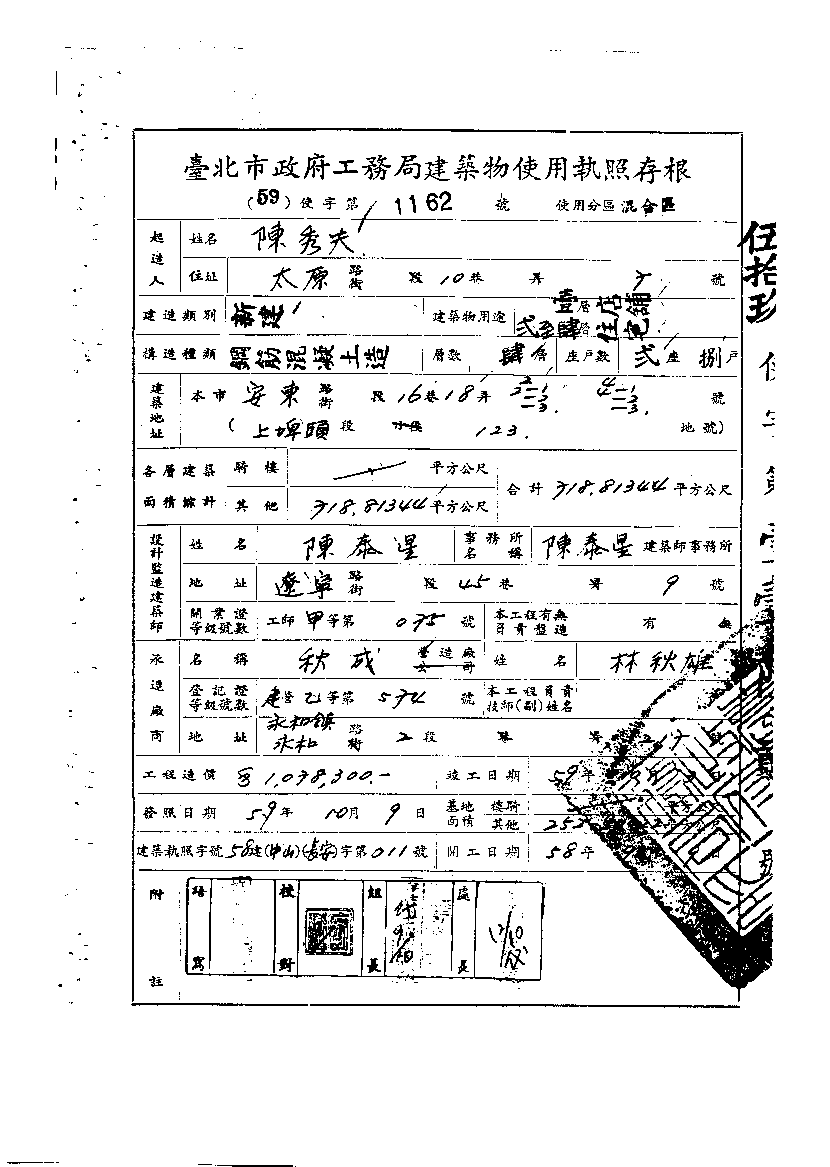 臺北市政府工務局建築物使用執照存根
(59)使字第 1162 號 使用分區 混合區
起造人 姓名 陳秀夫
住址 太原 路街 段 10 巷 弄 號
建造類別 新建 建築物用途 壹層 店舖 貳至肆層 住宅
構造種類 鋼筋混凝土造 層數 肆層 座戶數 貳座 捌戶
建築地址 本市 安東 路街 段 16 巷 18 弄 2 2-1 2-2 2-3 4 4-1 4-2 4-3 號
(上埤頭 段 小段 123. 地號)
各層建築面積總計 騎樓 平方公尺 合計 718.81344 平方公尺
其他 718.81344 平方公尺
設計監造建築師 姓名 陳泰星 事務所名稱 陳泰星 建築師事務所
地址 遼寧 路街 段 45 巷 弄 9 號
開業證等級號數 工師 甲 等第 075 號 本工程有無負責監造 有 無
承造廠商 名稱 秋成 營造廠公司 姓名 林秋雄
登記證等級號數 建營 乙 等第 574 號 本工程負責技師(副)姓名
地址 永和鎮 永和 路街 2 段 巷 弄 27 號
工程造價 1,078,300.- 竣工日期 59 年
發照日期 59 年 10 月 9 日 基地面積 騎樓
其他
建築執照字號 58建(中山)(長安)字第 011 號 開工日期 58 年 日
附註 繕寫 校對 組長 處長
12/10
伍拾玖 使字第 號